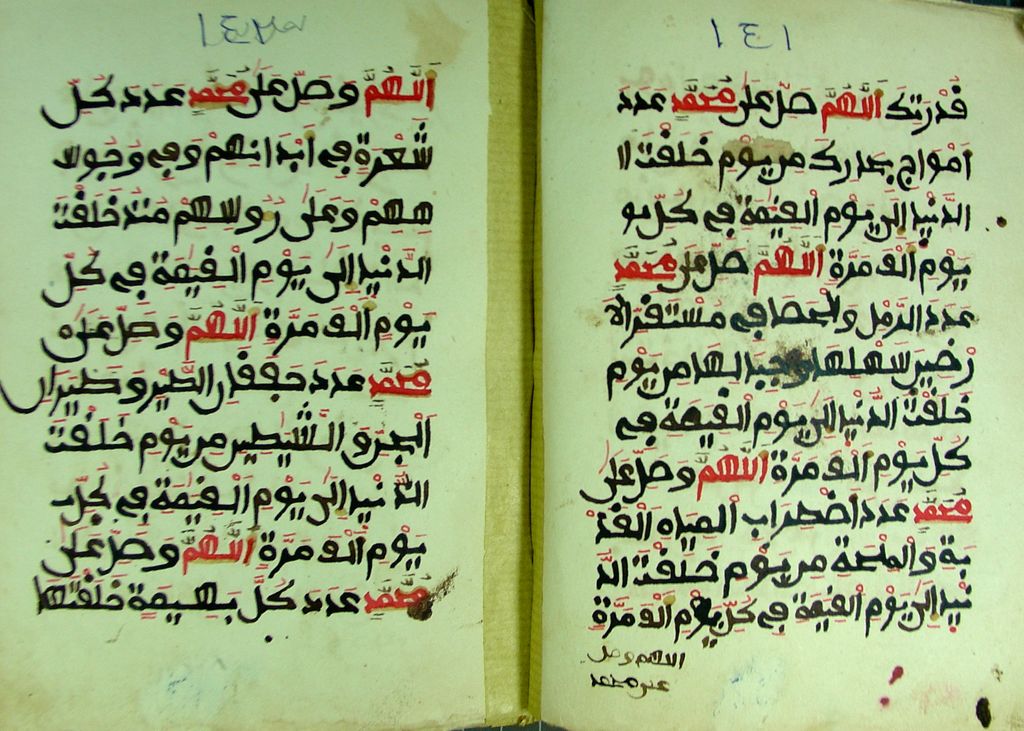 ١٤١
قدرتك اللهم صل على محمد عدد
امواج بحدرك من يوم خلقت ا
الدنيا الى يوم القيمة في كل يو
يوم الف مرة اللهم صل على محمد
عدد الرمل والحصا في مستقر الا
رضين سهلها وجبالها من يوم
خلقت الدنيا الى يوم القيمة في
كل يوم الف مرة اللهم وصل على
محمد عدد اضطراب المياه العذ
بة والملحة من يوم خلقت الد
نيا الى يوم القيمة في كل يوم الف مرة
اللهم وصل
على محمد
١٤٢
اللهم وصل على محمد عدد كل
شعرة في ابدانهم وفي وجوه
ههم وعلى روسهم منذ خلقت
الدنيا الى يوم القيمة في كل
يوم الف مرة اللهم وصل على
محمد عدد خفقان الطير وطيران
الجن والشيطين من يوم خلقت
الدنيا الى يوم القيمة في كل
يوم الف مرة اللهم وصل على
محمد عدد كل بهيمة خلقتها